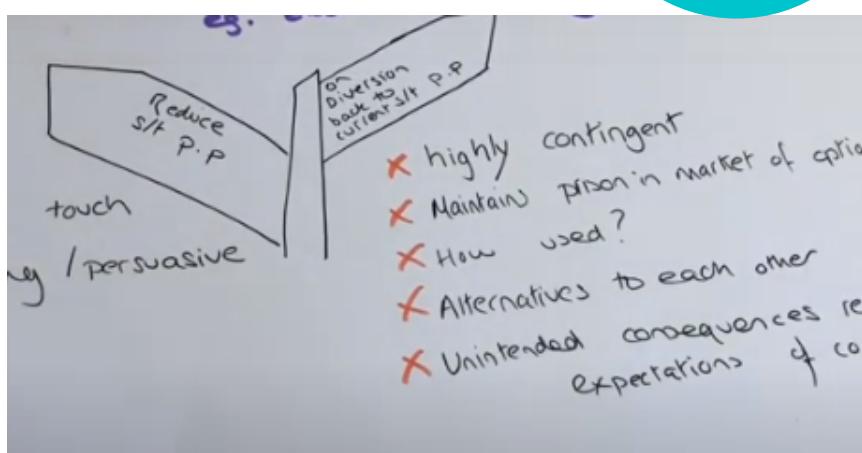 eg.
Reduce
s/t P.P
on
Diversion
back to
current s/t P.P
touch
/ persuasive
x highly contingent
x Maintains prison in market of
x How used?
x Alternatives to each other
x Unintended consequences
expectations of